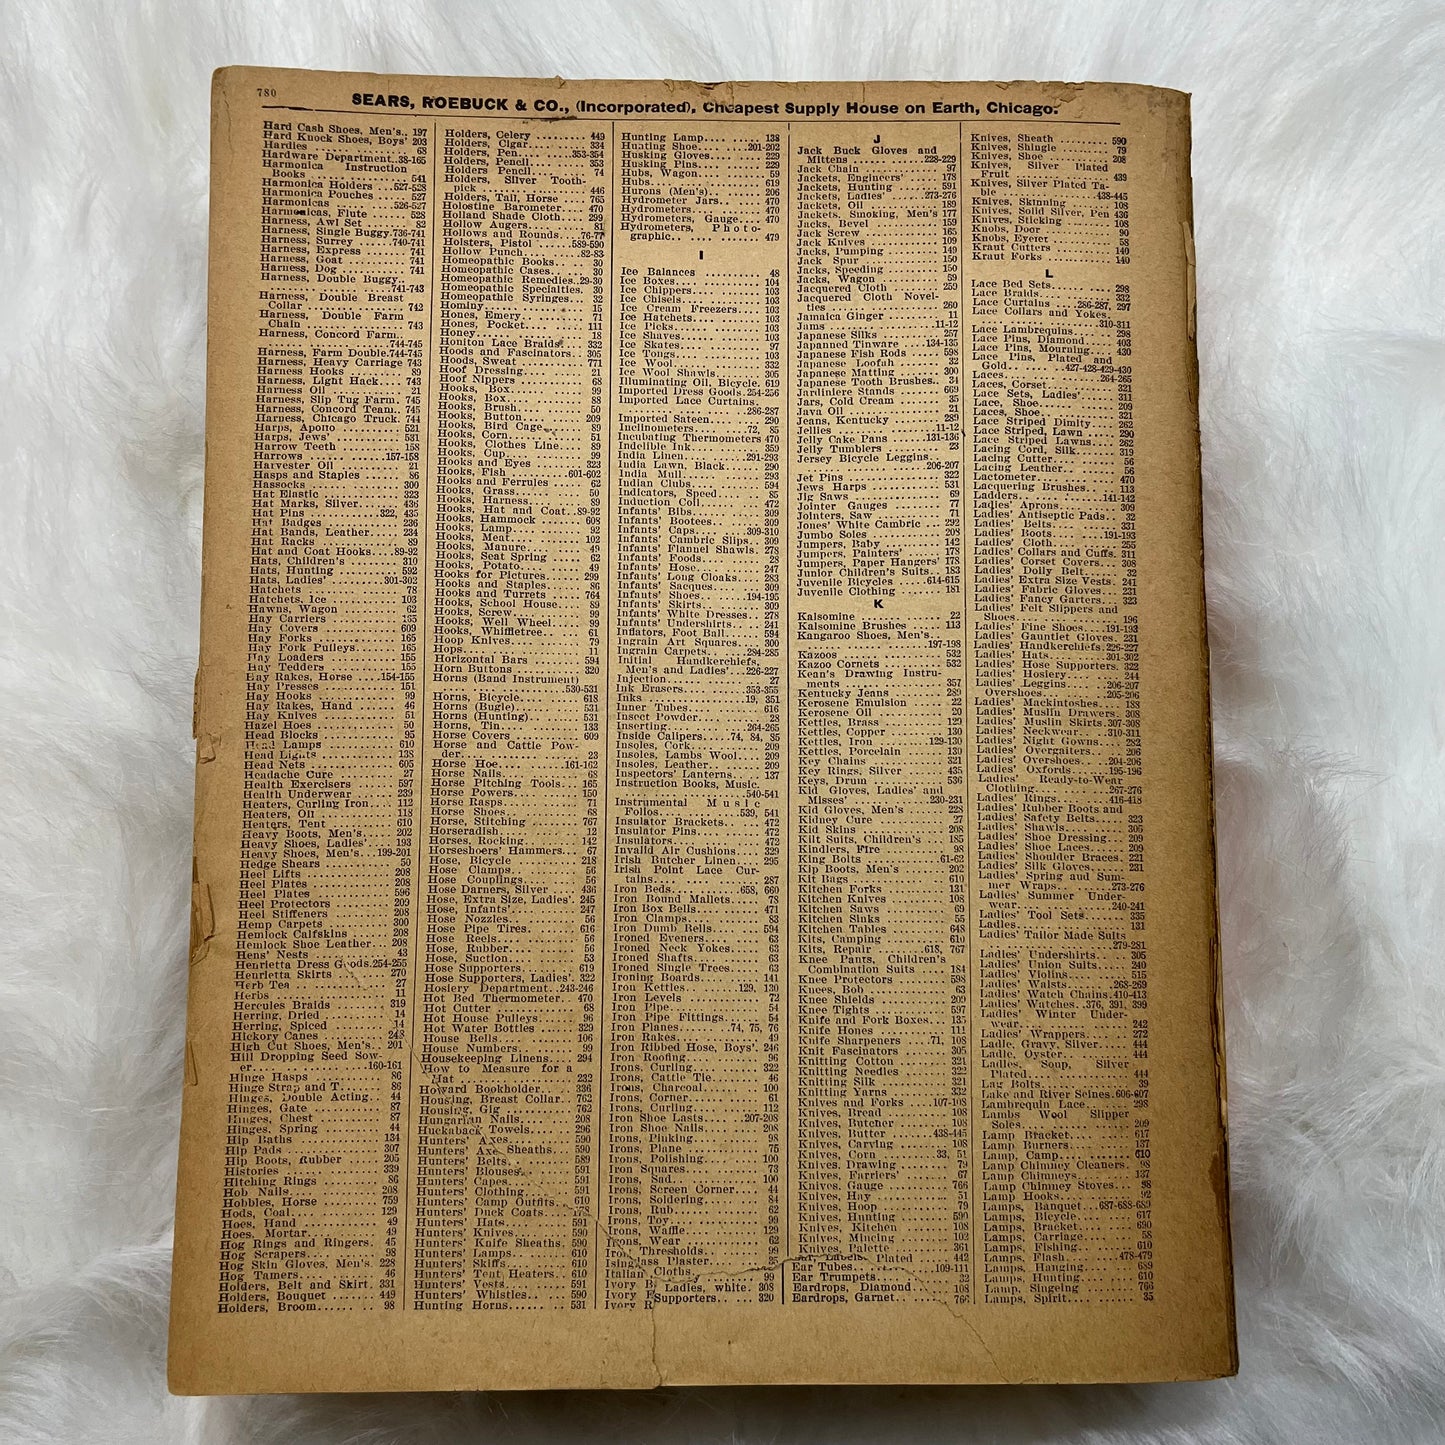 780
SEARS, ROEBUCK & CO., (Incorporated), Cheapest Supply House on Earth, Chicago.
Hard Cash Shoes, Men's.. 197
Hard Knock Shoes, Boys' 203
Hardies ........ 68
Hardware Department..38-165
Harmonica Instruction
Books ........ 541
Harmonica Holders ...527-528
Harmonica Pouches ..... 527
Harmonicas ........526-527
Harmonicas, Flute ....... 528
Harness, Awl Set ........ 82
Harness, Single Buggy.736-741
Harness, Surrey ....740-741
Harness, Express ....... 741
Harness, Goat ........ 741
Harness, Dog ........ 741
Harness, Double Buggy..
........741-743
Harness, Double Breast
Collar ........ 742
Harness, Double Farm
Chain ........ 743
Harness, Concord Farm..
........744-745
Harness, Farm Double.744-745
Harness, Heavy Carriage 743
Harness Hooks ........ 89
Harness, Light Hack.... 743
Harness Oil ........ 21
Harness, Slip Tug Farm.. 745
Harness, Concord Team.. 745
Harness, Chicago Truck. 744
Harps, Apollo ........ 521
Harps, Jews' ........ 531
Harrow Teeth ........ 158
Harrows ........157-158
Harvester Oil ........ 21
Hasps and Staples ...... 86
Hassocks ........ 300
Hat Elastic ........ 323
Hat Marks, Silver...... 436
Hat Pins ........322, 435
Hat Badges ........ 236
Hat Bands, Leather...... 234
Hat Racks ........ 89
Hat and Coat Hooks....89-92
Hats, Children's ........ 310
Hats, Hunting ........ 592
Hats, Ladies' ........301-302
Hatchets ........ 78
Hatchets, Ice ........ 103
Hawns, Wagon ........ 62
Hay Carriers ........ 165
Hay Covers ........ 609
Hay Forks ........ 165
Hay Fork Pulleys....... 165
Hay Loaders ........ 155
Hay Tedders ........ 155
Hay Rakes, Horse ....154-155
Hay Presses ........ 151
Hay Hooks ........ 99
Hay Rakes, Hand ...... 46
Hay Knives ........ 51
Hazel Hoes ........ 50
Head Blocks ........ 95
Head Lamps ........ 610
Head Lights ........ 138
Head Nets ........ 605
Headache Cure ........ 27
Health Exercisers ...... 597
Health Underwear ...... 239
Heaters, Curling Iron... 112
Heaters, Oil ........ 118
Heaters, Tent ........ 610
Heavy Boots, Men's.... 202
Heavy Shoes, Ladies'.... 193
Heavy Shoes, Men's...199-201
Hedge Shears ........ 50
Heel Lifts ........ 208
Heel Plates ........ 208
Heel Plates ........ 596
Heel Protectors ........ 209
Heel Stiffeners ........ 208
Hemp Carpets ........ 300
Hemlock Calfskins ...... 208
Hemlock Shoe Leather... 208
Hens' Nests ........ 43
Henrietta Dress Goods.254-255
Henrietta Skirts ........ 270
Herb Tea ........ 27
Herbs ........ 11
Hercules Braids ........ 319
Herring, Dried ........ 14
Herring, Spiced ........ 14
Hickory Canes ........ 248
High Cut Shoes, Men's.. 201
Hill Dropping Seed Sow-
er........160-161
Hinge Hasps ........ 86
Hinge Strap and T...... 86
Hinges, Double Acting.. 44
Hinges, Gate ........ 87
Hinges, Chest ........ 87
Hinges, Spring ........ 44
Hip Baths ........ 134
Hip Pads ........ 307
Hip Boots, Rubber ..... 205
Histories ........ 339
Hitching Rings ........ 86
Hob Nails........ 208
Hobbles, Horse ........ 759
Hods, Coal........ 129
Hoes, Hand ........ 49
Hoes, Mortar........ 49
Hog Rings and Ringers. 45
Hog Scrapers........ 98
Hog Skin Gloves, Men's. 228
Hog Tamers........ 46
Holders, Belt and Skirt. 331
Holders, Bouquet ....... 449
Holders, Broom........ 98
Holders, Celery ........ 449
Holders, Cigar........ 334
Holders, Pen........353-354
Holders, Pencil........ 353
Holders Pencil........ 74
Holders, Silver Tooth-
pick ........ 446
Holders, Tail, Horse .... 765
Holostine Barometer.... 470
Holland Shade Cloth.... 299
Hollow Augers........ 81
Hollows and Rounds....76-77
Holsters, Pistol ......589-590
Hollow Punch........82-83
Homeopathic Books.... 30
Homeopathic Cases.... 30
Homeopathic Remedies..29-30
Homeopathic Specialties. 30
Homeopathic Syringes... 32
Hominy........ 15
Hones, Emery........ 71
Hones, Pocket........ 111
Honey........ 18
Honiton Lace Braids.... 332
Hoods and Fascinators.. 305
Hoods, Sweat ........ 771
Hoof Dressing........ 21
Hoof Nippers ........ 68
Hooks, Box........ 99
Hooks, Box........ 88
Hooks, Brush........ 50
Hooks, Button........ 209
Hooks, Bird Cage........ 89
Hooks, Corn........ 51
Hooks, Clothes Line.... 89
Hooks, Cup........ 99
Hooks and Eyes ........ 323
Hooks, Fish ........601-602
Hooks and Ferrules .... 62
Hooks, Grass........ 50
Hooks, Harness........ 89
Hooks, Hat and Coat..89-92
Hooks, Hammock ...... 608
Hooks, Lamp........ 92
Hooks, Meat........ 102
Hooks, Manure........ 49
Hooks, Seat Spring .... 62
Hooks, Potato........ 49
Hooks for Pictures...... 299
Hooks and Staples...... 86
Hooks and Turrets .... 764
Hooks, School House.... 89
Hooks, Screw........ 99
Hooks, Well Wheel.... 99
Hooks, Whiffletree...... 61
Hoop Knives........ 79
Hops........ 11
Horizontal Bars ........ 594
Horn Buttons ........ 320
Horns (Band Instrument)
........530-531
Horns, Bicycle........ 618
Horns (Bugle)........ 531
Horns (Hunting)........ 531
Horns, Tin........ 133
Horse Covers ........ 609
Horse and Cattle Pow-
der........ 23
Horse Hoe........161-162
Horse Nails........ 68
Horse Pitching Tools... 165
Horse Powers........ 150
Horse Rasps........ 71
Horse Shoes........ 68
Horse, Stitching ........ 767
Horseradish........ 12
Horses, Rocking........ 142
Horseshoers' Hammers... 67
Hose, Bicycle ........ 218
Hose Clamps........ 56
Hose Couplings........ 56
Hose Darners, Silver ... 436
Hose, Extra Size, Ladies'. 245
Hose, Infants'........ 247
Hose Nozzles........ 56
Hose Pipe Tires........ 616
Hose Reels........ 56
Hose, Rubber........ 56
Hose, Suction........ 53
Hose Supporters........ 619
Hose Supporters, Ladies'. 322
Hosiery Department..243-246
Hot Bed Thermometer.. 470
Hot Cutter ........ 68
Hot House Pulleys...... 96
Hot Water Bottles ...... 329
House Bells........ 106
House Numbers........ 99
Housekeeping Linens.... 294
How to Measure for a
Hat ........ 232
Howard Bookholder.... 336
Housing, Breast Collar.. 762
Housing, Gig ........ 762
Hungarian Nails........ 208
Huckaback Towels...... 296
Hunters' Axes........ 590
Hunters' Axe Sheaths... 590
Hunters' Belts........ 589
Hunters' Blouses........ 591
Hunters' Capes........ 591
Hunters' Clothing ...... 591
Hunters' Camp Outfits.. 610
Hunters' Duck Coats.... 178
Hunters' Hats........ 591
Hunters' Knives........ 590
Hunters' Knife Sheaths. 590
Hunters' Lamps........ 610
Hunters' Skiffs........ 610
Hunters' Tent Heaters.. 610
Hunters' Vests........ 591
Hunters' Whistles...... 590
Hunting Horns........ 531
Hunting Lamp........ 138
Hunting Shoe........201-202
Husking Gloves........ 229
Husking Pins........ 229
Hubs, Wagon........ 59
Hubs........ 619
Hurons (Men's)........ 206
Hydrometer Jars........ 470
Hydrometers........ 470
Hydrometers, Gauge.... 470
Hydrometers, Photo-
graphic........ 479
I
Ice Balances ........ 48
Ice Boxes........ 104
Ice Chippers........ 103
Ice Chisels........ 103
Ice Cream Freezers.... 103
Ice Hatchets........ 103
Ice Picks........ 103
Ice Shaves........ 103
Ice Skates........ 97
Ice Tongs........ 103
Ice Wool........ 332
Ice Wool Shawls........ 305
Illuminating Oil, Bicycle. 619
Imported Dress Goods.254-256
Imported Lace Curtains.
........286-287
Imported Sateen........ 290
Inclinometers........72, 85
Incubating Thermometers 470
Indelible Ink........ 359
India Linen........291-293
India Lawn, Black...... 290
India Mull........ 293
Indian Clubs........ 594
Indicators, Speed...... 85
Induction Coil........ 472
Infants' Bibs........ 309
Infants' Bootees........ 309
Infants' Caps........309-310
Infants' Cambric Slips.. 309
Infants' Flannel Shawls. 278
Infants' Foods ........ 28
Infants' Hose........ 247
Infants' Long Cloaks.... 283
Infants' Sacques........ 309
Infants' Shoes........194-195
Infants' Skirts ........ 309
Infants' White Dresses.. 278
Infants' Undershirts.... 241
Inflators, Foot Ball...... 594
Ingrain Art Squares.... 300
Ingrain Carpets......284-285
Initial Handkerchiefs,
Men's and Ladies'..226-227
Injection........ 27
Ink Erasers........353-355
Inks ........19, 351
Inner Tubes........ 616
Insect Powder........ 28
Inserting........264-265
Inside Calipers....74, 84, 85
Insoles, Cork........ 209
Insoles, Lambs Wool.... 209
Insoles, Leather........ 209
Inspectors' Lanterns.... 137
Instruction Books, Music.
........540-541
Instrumental Music
Folios........539, 541
Insulator Brackets...... 472
Insulator Pins........ 472
Insulators........ 472
Invalid Air Cushions.... 329
Irish Butcher Linen.... 295
Irish Point Lace Cur-
tains........ 287
Iron Beds........658, 660
Iron Bound Mallets.... 78
Iron Box Bells........ 471
Iron Clamps ........ 83
Iron Dumb Bells........ 594
Ironed Eveners........ 63
Ironed Neck Yokes...... 63
Ironed Shafts........ 63
Ironed Single Trees.... 63
Ironing Boards........ 141
Iron Kettles........129, 130
Iron Levels ........ 72
Iron Pipe........ 54
Iron Pipe Fittings...... 54
Iron Planes......74, 75, 76
Iron Rakes........ 49
Iron Ribbed Hose, Boys'. 246
Iron Roofing........ 96
Irons, Curling........ 322
Irons, Cattle Tie........ 46
Irons, Charcoal........ 100
Irons, Corner........ 61
Irons, Curling........ 112
Iron Shoe Lasts......207-208
Iron Shoe Nails........ 208
Irons, Pinking........ 98
Irons, Plane ........ 75
Irons, Polishing........ 100
Iron Squares........ 73
Irons, Sad........ 100
Irons, Screen Corner.... 44
Irons, Soldering........ 84
Irons, Rub........ 62
Irons, Toy........ 99
Irons, Waffle........ 129
Irons, Wear ........ 62
Iron Thresholds........ 99
Isinglass Plaster........ 35
Italian Cloths........ 99
Ivory
Ladies, white. 308
Ivory
Supporters.. 320
Ivory
J
Jack Buck Gloves and
Mittens ........228-229
Jack Chain ........ 97
Jackets, Engineers' .... 178
Jackets, Hunting ...... 591
Jackets, Ladies' ....273-276
Jackets, Oil ........ 189
Jackets, Smoking, Men's 177
Jacks, Bevel ........ 159
Jack Screw ........ 165
Jack Knives ........ 109
Jacks, Pumping ........ 149
Jack Spur ........ 150
Jacks, Speeding ........ 150
Jacks, Wagon ........ 59
Jacquered Cloth ........ 259
Jacquered Cloth Novel-
ties ........ 260
Jamaica Ginger ........ 11
Jams ........11-12
Japanese Silks ........ 257
Japanned Tinware ..134-135
Japanese Fish Rods .... 598
Japanese Loofah ...... 32
Japanese Matting ...... 300
Japanese Tooth Brushes.. 34
Jardiniere Stands ...... 669
Jars, Cold Cream ...... 35
Java Oil ........ 21
Jeans, Kentucky ........ 289
Jellies ........11-12
Jelly Cake Pans ....131-136
Jelly Tumblers ........ 23
Jersey Bicycle Leggins..
........206-207
Jet Pins ........ 322
Jews Harps ........ 531
Jig Saws ........ 69
Jointer Gauges ........ 77
Jointers, Saw ........ 71
Jones' White Cambric .. 292
Jumbo Soles ........ 209
Jumpers, Baby ........ 142
Jumpers, Painters' .... 178
Jumpers, Paper Hangers' 178
Junior Children's Suits.. 183
Juvenile Bicycles ....614-615
Juvenile Clothing ...... 181
K
Kalsomine ........ 22
Kalsomine Brushes .... 113
Kangaroo Shoes, Men's..
........197-198
Kazoos ........ 532
Kazoo Cornets ........ 532
Kean's Drawing Instru-
ments ........ 357
Kentucky Jeans ........ 289
Kerosene Emulsion .... 22
Kerosene Oil ........ 20
Kettles, Brass ........ 129
Kettles, Copper ........ 130
Kettles, Iron ........129-130
Kettles, Porcelain ...... 130
Key Chains ........ 321
Key Rings, Silver ...... 435
Keys, Drum ........ 536
Kid Gloves, Ladies' and
Misses' ........230-231
Kid Gloves, Men's .... 228
Kidney Cure ........ 27
Kid Skins ........ 208
Kilt Suits, Children's .. 185
Kindlers, Fire ........ 98
King Bolts ........61-62
Kip Boots, Men's ...... 202
Kit Bags ........ 610
Kitchen Forks ........ 131
Kitchen Knives ........ 108
Kitchen Saws ........ 69
Kitchen Sinks ........ 55
Kitchen Tables ........ 648
Kits, Camping ........ 610
Kits, Repair ........618, 767
Knee Pants, Children's
Combination Suits .... 184
Knee Protectors ........ 598
Knees, Bob ........ 63
Knee Shields ........ 209
Knee Tights ........ 597
Knife and Fork Boxes... 135
Knife Hones ........ 111
Knife Sharpeners ....71, 108
Knit Fascinators ...... 305
Knitting Cotton ........ 321
Knitting Needles ...... 322
Knitting Silk ........ 321
Knitting Yarns ........ 332
Knives and Forks ..107-108
Knives, Bread ........ 108
Knives, Butcher ........ 108
Knives, Butter ......438-445
Knives, Carving ........ 108
Knives, Corn ........33, 51
Knives, Drawing ........ 79
Knives, Farriers' ...... 67
Knives, Gauge ........ 766
Knives, Hay ........ 51
Knives, Hoop ........ 79
Knives, Hunting ........ 590
Knives, Kitchen ........ 108
Knives, Mincing ........ 102
Knives, Palette ........ 361
Plated ........ 442
Ear Tubes........109-111
Ear Trumpets........ 32
Eardrops, Diamond..... 108
Eardrops, Garnet........ 766
Knives, Sheath ........ 590
Knives, Shingle ........ 79
Knives, Shoe ........ 208
Knives, Silver Plated
Fruit ........ 439
Knives, Silver Plated Ta-
ble ........438-445
Knives, Skinning ........ 108
Knives, Solid Silver, Pen 436
Knives, Sticking ........ 108
Knobs, Door ........ 90
Knobs, Eyelet ........ 58
Kraut Cutters ........ 140
Kraut Forks ........ 140
L
Lace Bed Sets........ 298
Lace Braids........ 332
Lace Curtains ....286-287, 297
Lace Collars and Yokes.
........310-311
Lace Lambrequins...... 298
Lace Pins, Diamond.... 403
Lace Pins, Mourning.... 430
Lace Pins, Plated and
Gold........427-428-429-430
Laces........264-265
Laces, Corset........ 321
Lace Sets, Ladies'...... 311
Lace, Shoe........ 209
Laces, Shoe........ 321
Lace Striped Dimity.... 262
Lace Striped, Lawn .... 290
Lace Striped Lawns.... 262
Lacing Cord, Silk...... 319
Lacing Cutter ........ 56
Lacing Leather........ 56
Lactometer........ 470
Lacquering Brushes.... 113
Ladders........141-142
Ladies' Aprons........ 309
Ladies' Antiseptic Pads.. 32
Ladies' Belts........ 331
Ladies' Boots........191-193
Ladies' Cloth........ 255
Ladies' Collars and Cuffs. 311
Ladies' Corset Covers... 308
Ladies' Doily Belt...... 32
Ladies' Extra Size Vests. 241
Ladies' Fabric Gloves... 231
Ladies' Fancy Garters... 323
Ladies' Felt Slippers and
Shoes........ 196
Ladies' Fine Shoes...191-193
Ladies' Gauntlet Gloves. 231
Ladies' Handkerchiefs.226-227
Ladies' Hats........301-302
Ladies' Hose Supporters. 322
Ladies' Hosiery........ 244
Ladies' Leggins......206-207
Overshoes........205-206
Ladies' Mackintoshes... 188
Ladies' Muslin Drawers. 308
Ladies' Muslin Skirts.307-308
Ladies' Neckwear....310-311
Ladies' Night Gowns.... 282
Ladies' Overgaiters...... 206
Ladies' Overshoes....204-206
Ladies' Oxfords......195-196
Ladies' Ready-to-Wear
Clothing........267-276
Ladies' Rings........416-418
Ladies' Rubber Boots and
Ladies' Safety Belts...... 323
Ladies' Shawls........ 305
Ladies' Shoe Dressing... 209
Ladies' Shoe Laces...... 209
Ladies' Shoulder Braces. 221
Ladies' Silk Gloves...... 231
Ladies' Spring and Sum-
mer Wraps........273-276
Ladies' Summer Under-
wear........240-241
Ladies' Tool Sets........ 335
Ladles........ 131
Ladies' Tailor Made Suits
........279-281
Ladies' Undershirts...... 305
Ladies' Union Suits.... 240
Ladies' Violins........ 515
Ladies' Waists......268-269
Ladies' Watch Chains.410-413
Ladies' Watches..376, 391, 399
Ladies' Winter Under-
wear........ 242
Ladies' Wrappers........ 272
Ladle, Gravy, Silver.... 444
Ladle, Oyster ........ 444
Ladles, Soup, Silver
Plated........ 444
Lag Bolts........ 39
Lake and River Seines.606-607
Lambrequin Lace........ 298
Lambs Wool Slipper
Soles........ 209
Lamp Bracket........ 617
Lamp Burners........ 137
Lamp, Camp........ 610
Lamp Chimney Cleaners. 98
Lamp Chimneys........ 137
Lamp Chimney Stoves... 98
Lamp Hooks........ 92
Lamps, Banquet....687-688-689
Lamps, Bicycle........ 617
Lamps, Bracket........ 690
Lamps, Carriage........ 58
Lamps, Fishing........ 610
Lamps, Flash........478-479
Lamps, Hanging........ 689
Lamps, Hunting ........ 610
Lamp, Singeing ........ 766
Lamps, Spirit........ 35